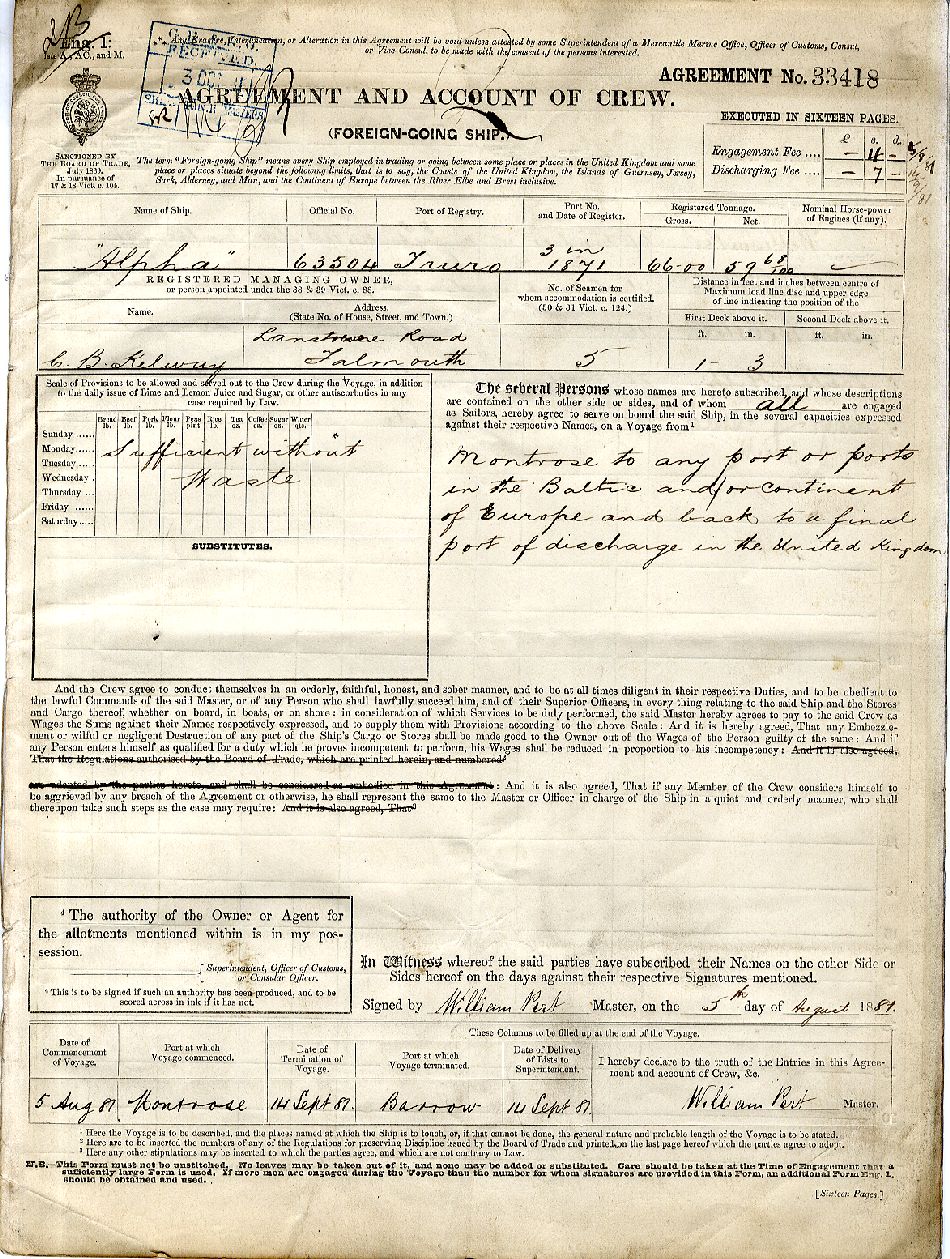 Eng. 1.
Any Erasure, Interlineation, or Alteration in this Agreement will be void unless attested by some Superintendent of a Mercantile Marine Office, Officer of Customs, Consul,
or Vice Consul, to be made with the consent of the persons interested.
RECEIVED
3 OCT
AGREEMENT No. 33418
AGREEMENT AND ACCOUNT OF CREW.
(FOREIGN-GOING SHIP.)
EXECUTED IN SIXTEEN PAGES.
£ s. d.
Engagement Fee ....
Discharging Fee ... – 7 –
SANCTIONED BY
THE BOARD OF TRADE,
In pursuance of
17 & 18 Vict. c. 104.
The term "Foreign-going Ship" means every Ship employed in trading or going between some place or places in the United Kingdom and some
place or places situate beyond the following limits, that is to say, the Coasts of the United Kingdom, the Islands of Guernsey, Jersey,
Sark, Alderney, and Man, and the Continent of Europe between the River Elbe and Brest inclusive.
Name of Ship. Official No. Port of Registry. Port No. and Date of Register. Registered Tonnage. Gross. Net. Nominal Horse-power of Engines (if any).
"Alpha" 63504 Truro 3 in 1871 66.00 59 68/100
REGISTERED MANAGING OWNER,
or person appointed under the 38 & 39 Vict. c. 88.
Name. Address.
(State No. of House, Street, and Town.)
No. of Seamen for
whom accommodation is certified.
(30 & 31 Vict. c. 124.)
Distance in feet and inches between centre of
Maximum load line disc and upper edge
of line indicating the position of the
First Deck above it. Second Deck above it.
ft. in. ft. in.
Road
C. B. Kelway Falmouth 5 1 - 3
Scale of Provisions to be allowed and served out to the Crew during the Voyage, in addition
to the daily issue of Lime and Lemon Juice and Sugar, or other antiscorbutics in any
case required by Law.
Bread lb. Beef lb. Pork lb. Flour lb. Peas pint Rice lb. Tea oz. Coffee oz. Sugar oz. Water qts.
Sunday ......
Monday ......
Tuesday ......
Wednesday ...
Thursday ...
Friday ......
Saturday ....
Sufficient without
Waste
SUBSTITUTES.
The several Persons whose names are hereto subscribed, and whose descriptions
are contained on the other side or sides, and of whom all are engaged
as Sailors, hereby agree to serve on board the said Ship, in the several capacities expressed
against their respective Names, on a Voyage from¹
Montrose to any port or ports
in the Baltic and/or continent
of Europe and back to a final
port of discharge in the United Kingdom
And the Crew agree to conduct themselves in an orderly, faithful, honest, and sober manner, and to be at all times diligent in their respective Duties, and to be obedient to
the lawful Commands of the said Master, or of any Person who shall lawfully succeed him, and of their Superior Officers, in every thing relating to the said Ship and the Stores
and Cargo thereof, whether on board, in boats, or on shore: in consideration of which Services to be duly performed, the said Master hereby agrees to pay to the said Crew as
Wages the Sums against their Names respectively expressed, and to supply them with Provisions according to the above Scale: And it is hereby agreed, That any Embezzle-
ment or wilful or negligent Destruction of any part of the Ship's Cargo or Stores shall be made good to the Owner out of the Wages of the Person guilty of the same: And if
any Person enters himself as qualified for a duty which he proves incompetent to perform, his Wages shall be reduced in proportion to his incompetency: And it is also agreed,
That the Regulations authorised by the Board of Trade, which are printed herein, and numbered²
adopted by the parties hereto, and shall be considered as embodied in this Agreement: And it is also agreed, That if any Member of the Crew considers himself to
be aggrieved by any breach of the Agreement or otherwise, he shall represent the same to the Master or Officer in charge of the Ship in a quiet and orderly manner, who shall
thereupon take such steps as the case may require: And it is also agreed, That³
⁴ The authority of the Owner or Agent for
the allotments mentioned within is in my pos-
session.
Superintendent, Officer of Customs,
or Consular Officer.
⁴ This is to be signed if such an authority has been produced, and to be
scored across in ink if it has not.
In Witness whereof the said parties have subscribed their Names on the other Side or
Sides hereof on the days against their respective Signatures mentioned.
Signed by William Pert Master, on the 5th day of August 1881.
These Columns to be filled up at the end of the Voyage.
Date of Commencement of Voyage. Port at which Voyage commenced. Date of Termination of Voyage. Port at which Voyage terminated. Date of Delivery of Lists to Superintendent. I hereby declare to the truth of the Entries in this Agree-
ment and account of Crew, &c.
5 Aug 81 Montrose 14 Sept 81 Barrow 14 Sept 81 William Pert Master.
¹ Here the Voyage is to be described, and the places named at which the Ship is to touch, or, if that cannot be done, the general nature and probable length of the Voyage is to be stated.
² Here are to be inserted the numbers of any of the Regulations for preserving Discipline issued by the Board of Trade and printed on the last page hereof which the parties agree to adopt.
³ Here any other stipulations may be inserted to which the parties agree, and which are not contrary to Law.
N.B. This Form must not be unstitched. No leaves may be taken out of it, and none may be added or substituted. Care should be taken at the Time of Engagement that a
sufficiently large Form is used. If more men are engaged during the Voyage than the number for whom signatures are provided in this Form, an additional Form Eng. 1.
should be obtained and used.
[Sixteen Pages.]